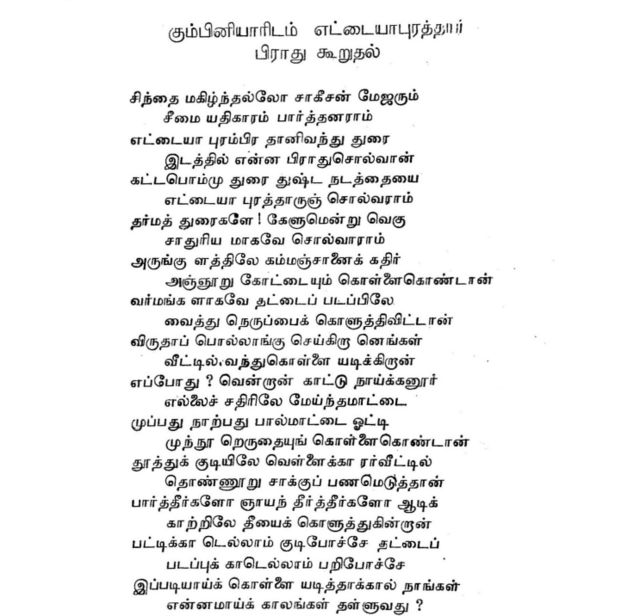 கும்பினியாரிடம் எட்டையாபுரத்தார்
பிராது கூறுதல்
சிந்தை மகிழ்ந்தல்லோ சாகீசன் மேஜரும்
சீமை யதிகாரம் பார்த்தனராம்
எட்டையா புரம்பிர தானிவந்து துரை
இடத்தில் என்ன பிராதுசொல்வான்
கட்டபொம்மு துரை துஷ்ட நடத்தையை
எட்டையா புரத்தாருஞ் சொல்வராம்
தர்மத் துரைகளே! கேளுமென்று வெகு
சாதுரிய மாகவே சொல்வாராம்
அருங்கு ளத்திலே கம்மஞ்சானைக் கதிர்
அஞ்ஞூறு கோட்டையும் கொள்ளைகொண்டான்
வர்மங்க ளாகவே தட்டைப் படப்பிலே
வைத்து நெருப்பைக் கொளுத்திவிட்டான்
விருதாப் பொல்லாங்கு செய்கிறா னெங்கள்
வீட்டில் வந்துகொள்ளை யடிக்கிறான்
எப்போது? வென்றான் காட்டு நாய்க்கனூர்
எல்லைச் சதிரிலே மேய்ந்தமாட்டை
முப்பது நாற்பது பால்மாட்டை ஓட்டி
முந்நூ றெருதையுங் கொள்ளைகொண்டான்
தூத்துக் குடியிலே வெள்ளைக்கா ரர்வீட்டில்
தொண்ணூறு சாக்குப் பணமெடுத்தான்
பார்த்தீர்களோ ஞாயந் தீர்த்தீர்களோ ஆடிக்
காற்றிலே தீயைக் கொளுத்துகின்றான்
பட்டிக்கா டெல்லாம் குடிபோச்சே தட்டைப்
படப்புக் காடெல்லாம் பறிபோச்சே
இப்படியாய்க் கொள்ளை யடித்தாக்கால் நாங்கள்
என்னமாய்க் காலங்கள் தள்ளுவது?